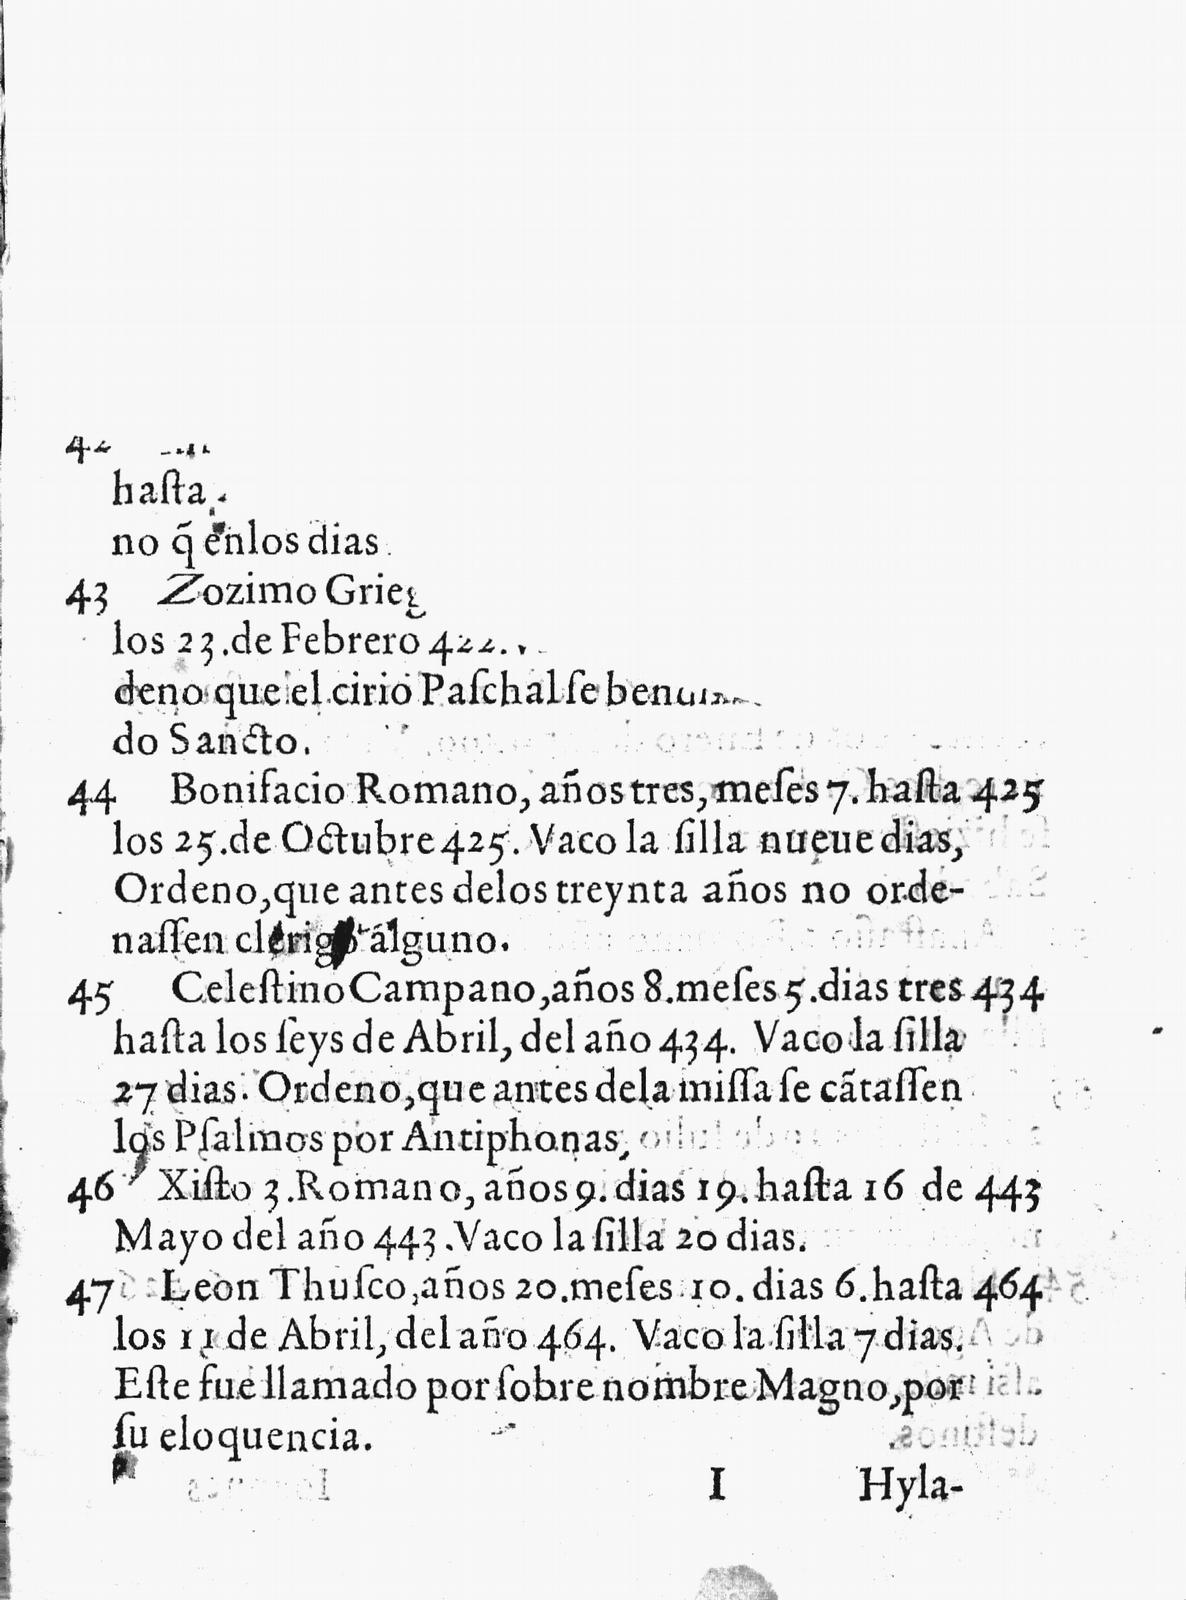 42
hasta
no q̃ enlos dias
43 Zozimo Grieg
los 23.de Febrero 422.
deno que el cirio Paſchal ſe ben
do Sancto.
44 Bonifacio Romano, años tres, meſes 7. haſta 425
los 25.de Octubre 425. Vaco la ſilla nueue dias,
Ordeno,que antes delos treynta años no orde-
naſſen clerigo alguno.
45 Celeſtino Campano,años 8.meſes 5.dias tres 434
haſta los ſeys de Abril, del año 434. Vaco la ſilla
27 dias. Ordeno,que antes dela miſſa ſe cãtaſſen
los Pſalmos por Antiphonas,
46 Xiſto 3.Romano, años 9. dias 19. haſta 16 de 443
Mayo del año 443.Vaco la ſilla 20 dias.
47 Leon Thuſco,años 20.meſes 10. dias 6.haſta 464
los 11 de Abril, del año 464. Vaco la ſilla 7 dias.
Eſte fue llamado por ſobre nombre Magno,por
ſu eloquencia.
I Hyla-